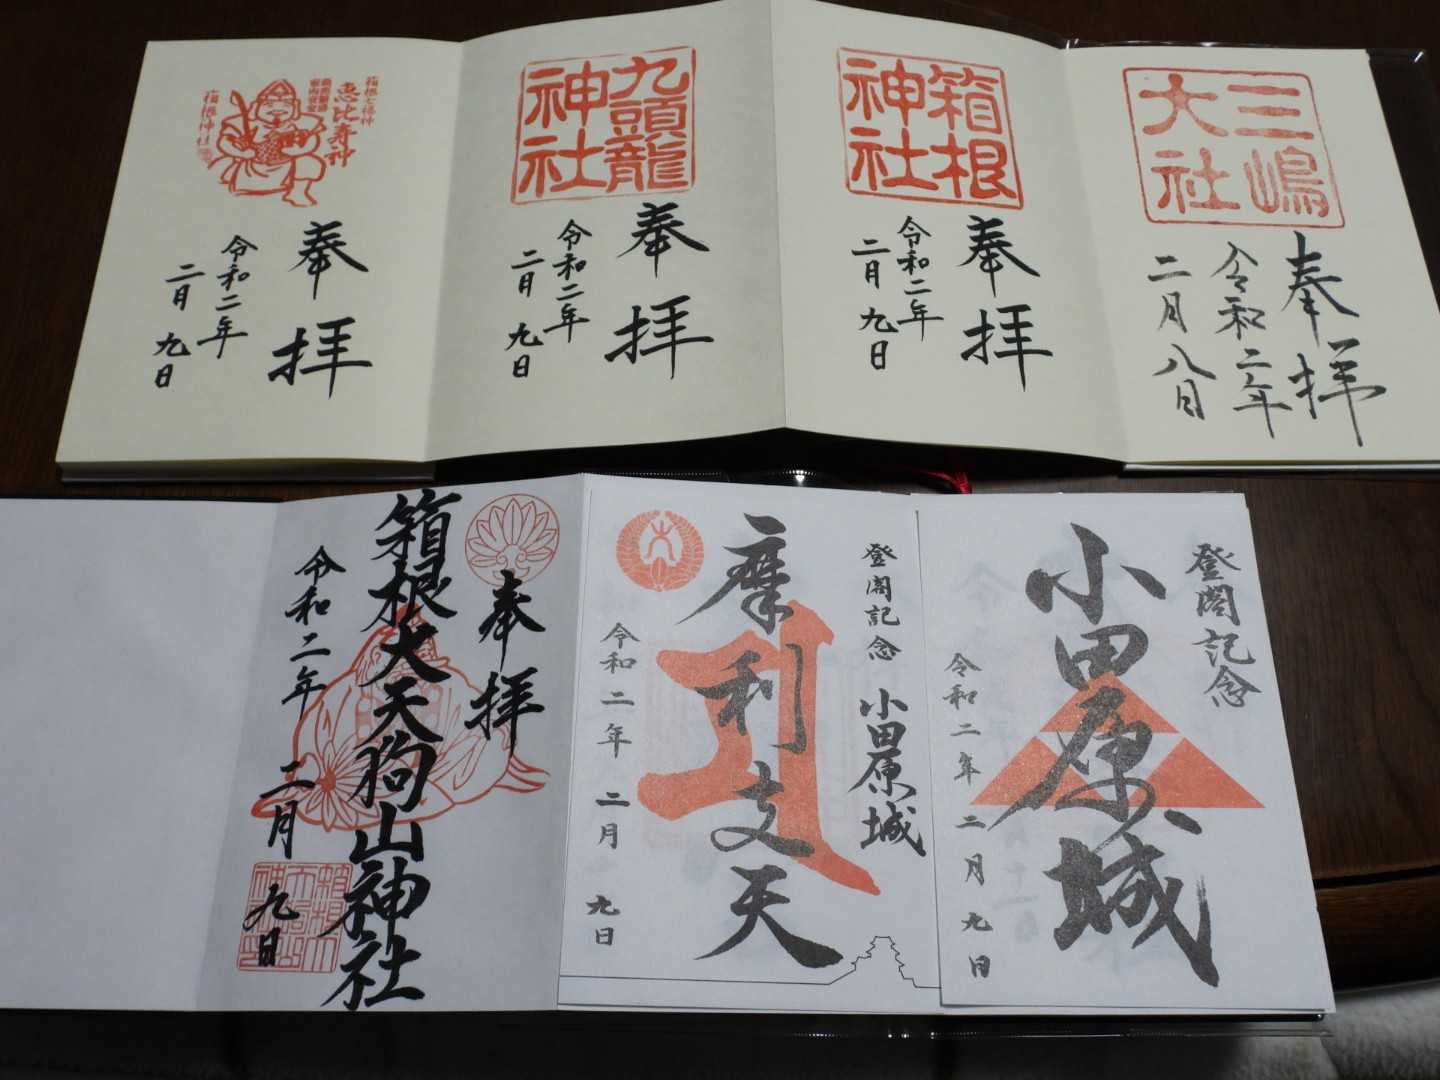 三嶋
大社
奉拝
令和二年
二月八日
箱根
神社
奉拝
令和二年
二月九日
九頭龍
神社
奉拝
令和二年
二月九日
箱根七福神
恵比寿神
箱根神社
奉拝
令和二年
二月九日
登閣記念
小田原城
令和二年二月九日
登閣記念 小田原城
摩利支天
令和二年二月九日
奉拝
箱根大天狗山神社
令和二年二月九日